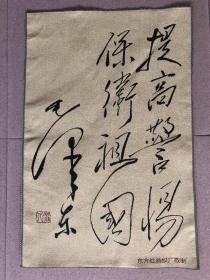 提高警惕
保衛祖國
毛泽东
东方红丝织厂敬制